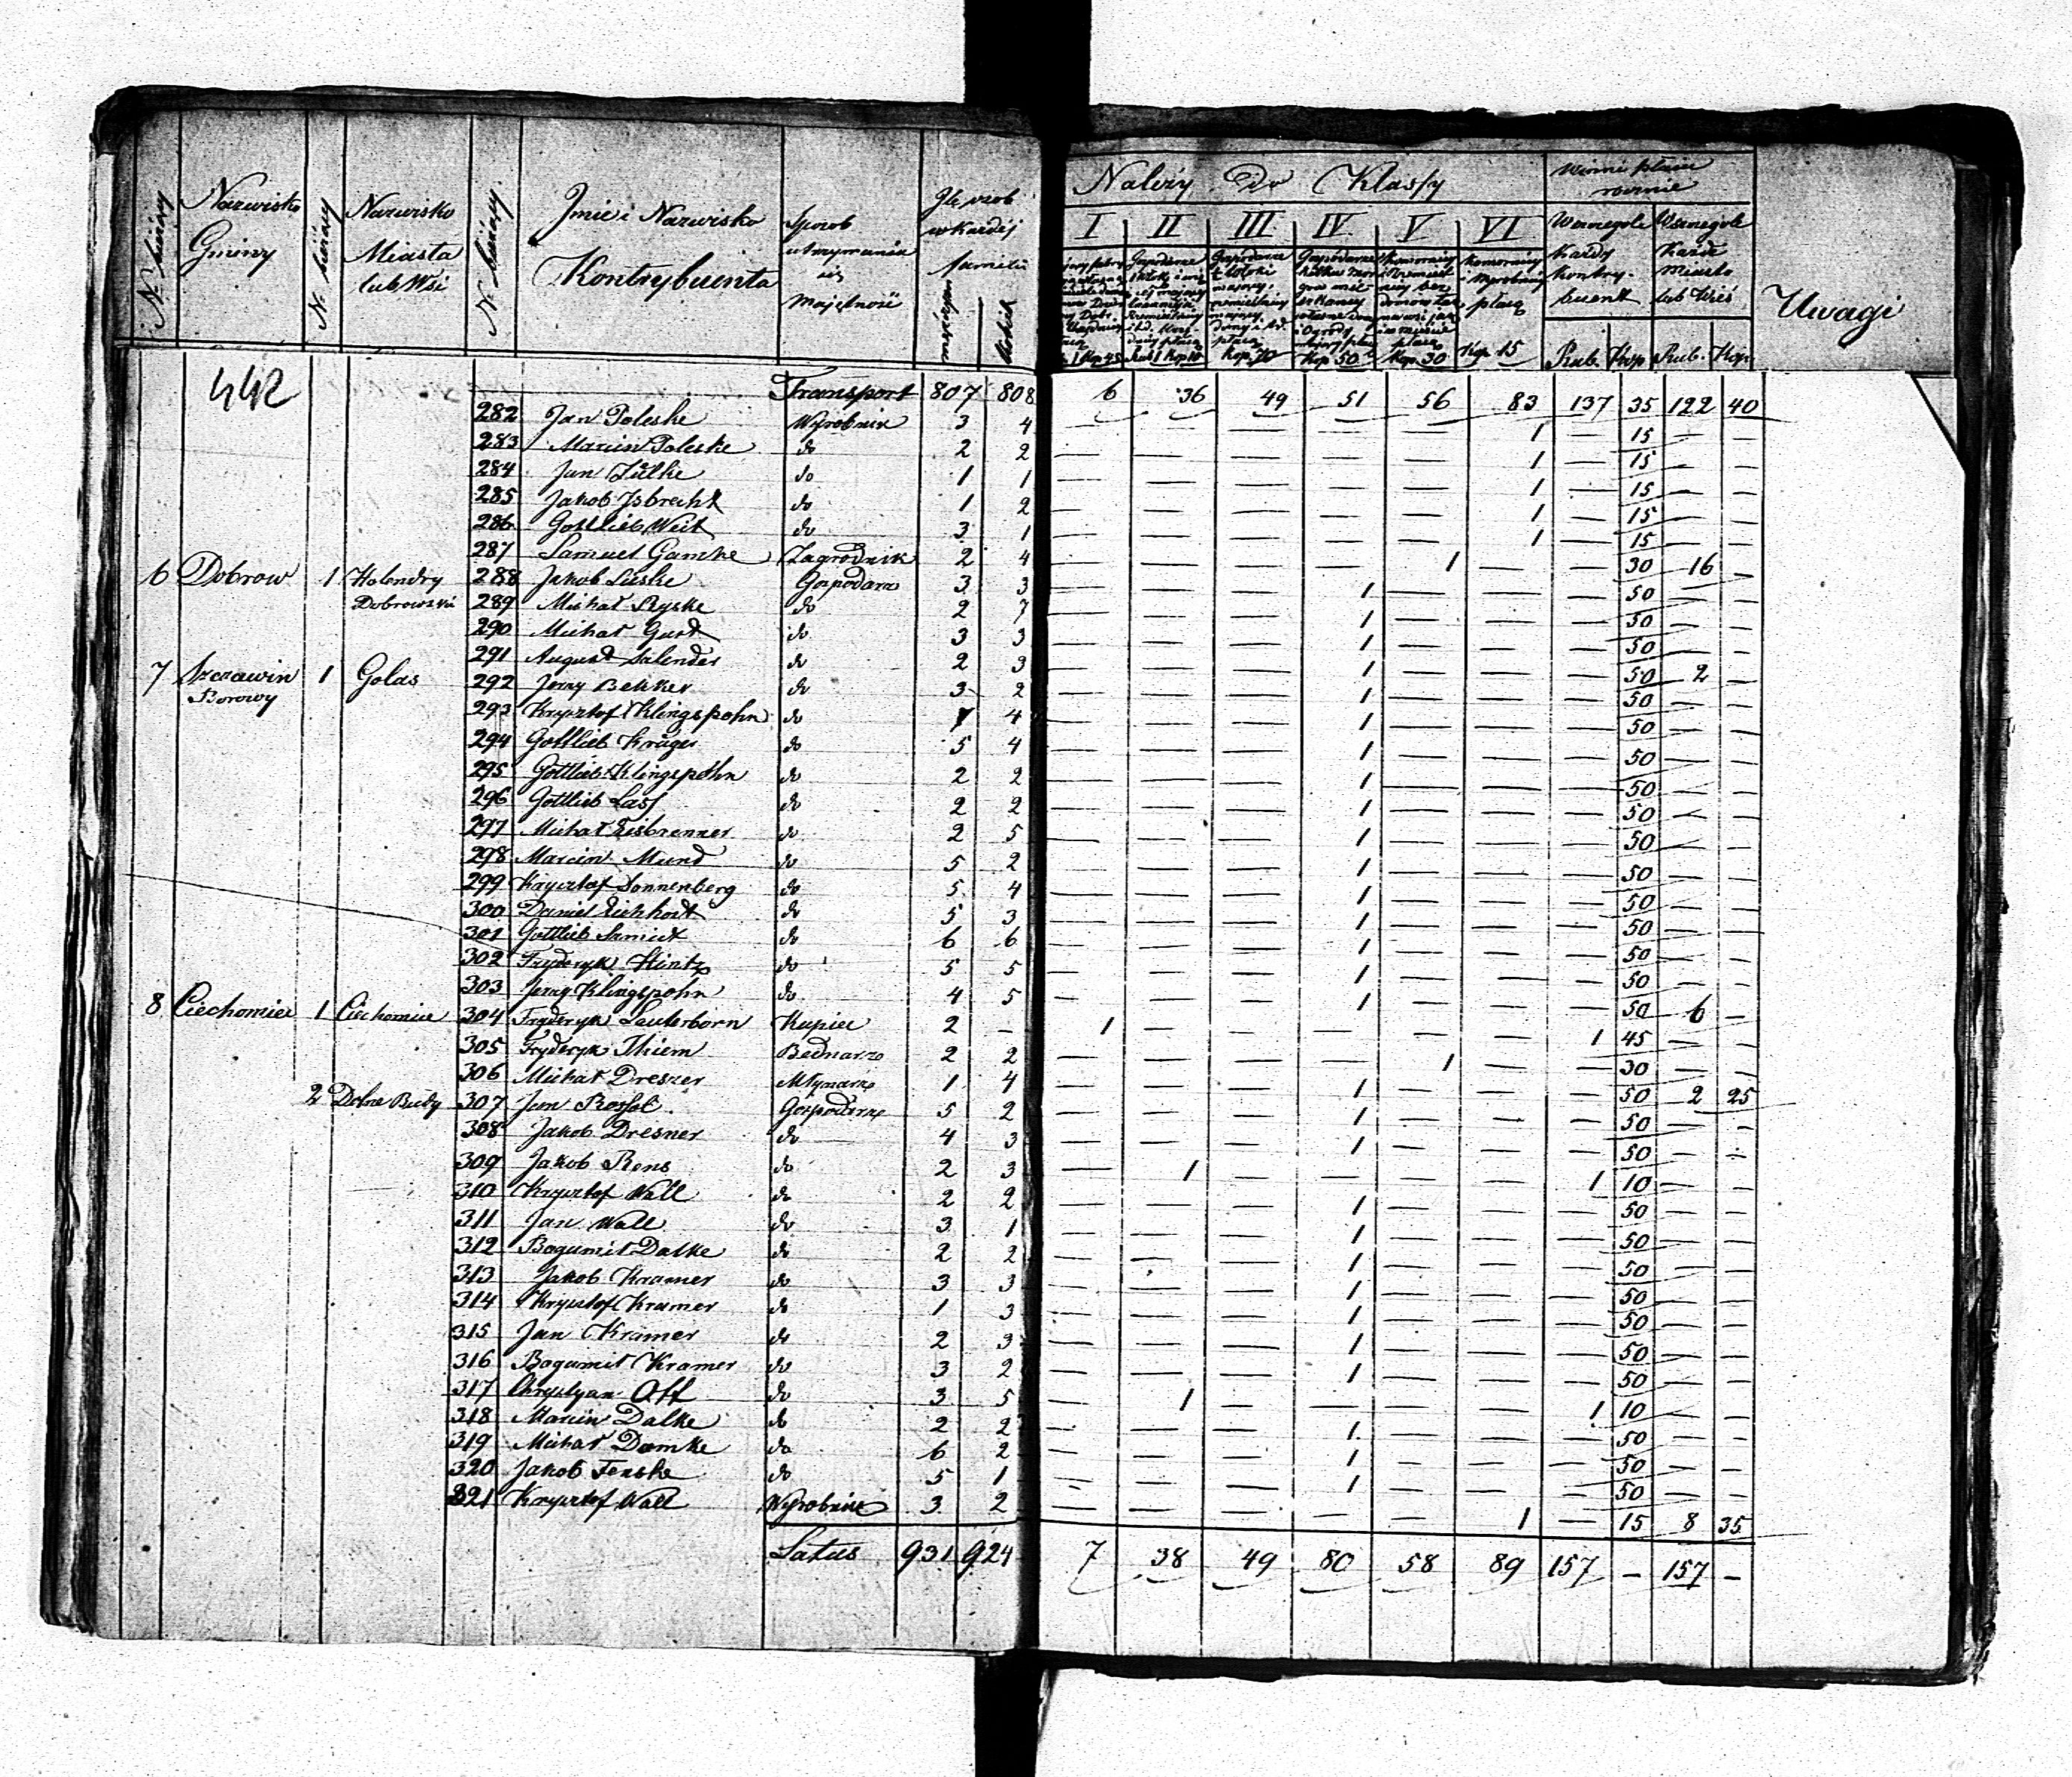 Nr bieżący
Nazwisko Gminy
Nr bieżący
Nazwisko Miasta lub Wsi
Nr bieżący
Jmie i Nazwisko Kontrybuenta
Sposob utrzymania się
Majętność
Głow osob w każdej familii
męzkich
żeńskich
Należy do Klassy
I II III IV V VI
Kop 70 Kop 50 Kop 30 Kop 15
Winni płacić rocznie
Wszczególe każdy kontrybuent
Wszczególe każde miasto lub Wieś
Rub. Kop Rub. Kop.
Uwagi
442
Transport 807 808 6 36 49 51 56 83 137 35 122 40
282 Jan Poleske Wyrobnik 3 4 — — — — — 1 — 15 — —
283 Marcin Poleske do 2 2 — — — — — 1 — 15 — —
284 Jan Lütke do 1 1 — — — — — 1 — 15 — —
285 Jakob Jsbrecht do 1 2 — — — — — 1 — 15 — —
286 Gottlieb Weit do 3 1 — — — — — 1 — 15 — —
287 Samuel Gamke Zagrodnik 2 4 — — — — 1 — — 30 16 —
6 Dobrow 1 Holendry 288 Jakob Lieske Gospodarz 3 3 — — — 1 — — — 50 — —
Dobrowski 289 Michał Ryske do 2 7 — — — 1 — — — 50 — —
290 Michał Gust do 3 3 — — — 1 — — — 50 — —
291 August Salender do 2 3 — — — 1 — — — 50 2 —
7 Szczawin 1 Golas 292 Jerzy Bekker do 3 2 — — — 1 — — — 50 — —
Borowy 293 Krysztof Klingspohn do 1 4 — — — 1 — — — 50 — —
294 Gottlieb Krüger do 5 4 — — — 1 — — — 50 — —
295 Gottlieb Klingspohn do 2 2 — — — 1 — — — 50 — —
296 Gottlieb Lass do 2 2 — — — 1 — — — 50 — —
297 Michał Eisbrenner do 2 5 — — — 1 — — — 50 — —
298 Marcin Mund do 5 2 — — — 1 — — — 50 — —
299 Krysztof Sonnenberg do 5 4 — — — 1 — — — 50 — —
300 Daniel Eichhort do 5 3 — — — 1 — — — 50 — —
301 Gottlieb Szmidt do 6 6 — — — 1 — — — 50 — —
302 Fryderyk Hintz do 5 5 — — — 1 — — — 50 — —
303 Jerzy Klingspohn do 4 5 — — — 1 — — — 50 6 —
8 Ciechomice 1 Ciechomice 304 Fryderyk Lauterborn Kupiec 2 — 1 — — — — — 1 45 — —
305 Fryderyk Thiem Bednarz 2 2 — — — — 1 — — 30 — —
306 Michał Dreszer Młynarz 1 4 — — — 1 — — — 50 2 25
2 Dolne Budy 307 Jan Rossol Gospodarz 5 2 — — — 1 — — — 50 — —
308 Jakob Dresner do 4 3 — — — 1 — — — 50 — —
309 Jakob Rens do 2 3 — 1 — — — — 1 10 — —
310 Krysztof Wall do 2 2 — — — 1 — — — 50 — —
311 Jan Wall do 3 1 — — — 1 — — — 50 — —
312 Bogumił Dalke do 2 2 — — — 1 — — — 50 — —
313 Jakob Kramer do 3 3 — — — 1 — — — 50 — —
314 Krysztof Kramer do 1 3 — — — 1 — — — 50 — —
315 Jan Kramer do 2 3 — — — 1 — — — 50 — —
316 Bogumił Kramer do 3 2 — — — 1 — — — 50 — —
317 Chrystyan Off do 3 5 — 1 — — — — 1 10 — —
318 Marcin Dalke do 2 2 — — — 1 — — — 50 — —
319 Michał Damke do 6 2 — — — 1 — — — 50 — —
320 Jakob Fenske do 5 1 — — — 1 — — — 50 — —
321 Krysztof Wall Wyrobnik 3 2 — — — — — 1 — 15 8 35
Latus 931 924 7 38 49 80 58 89 157 — 157 —